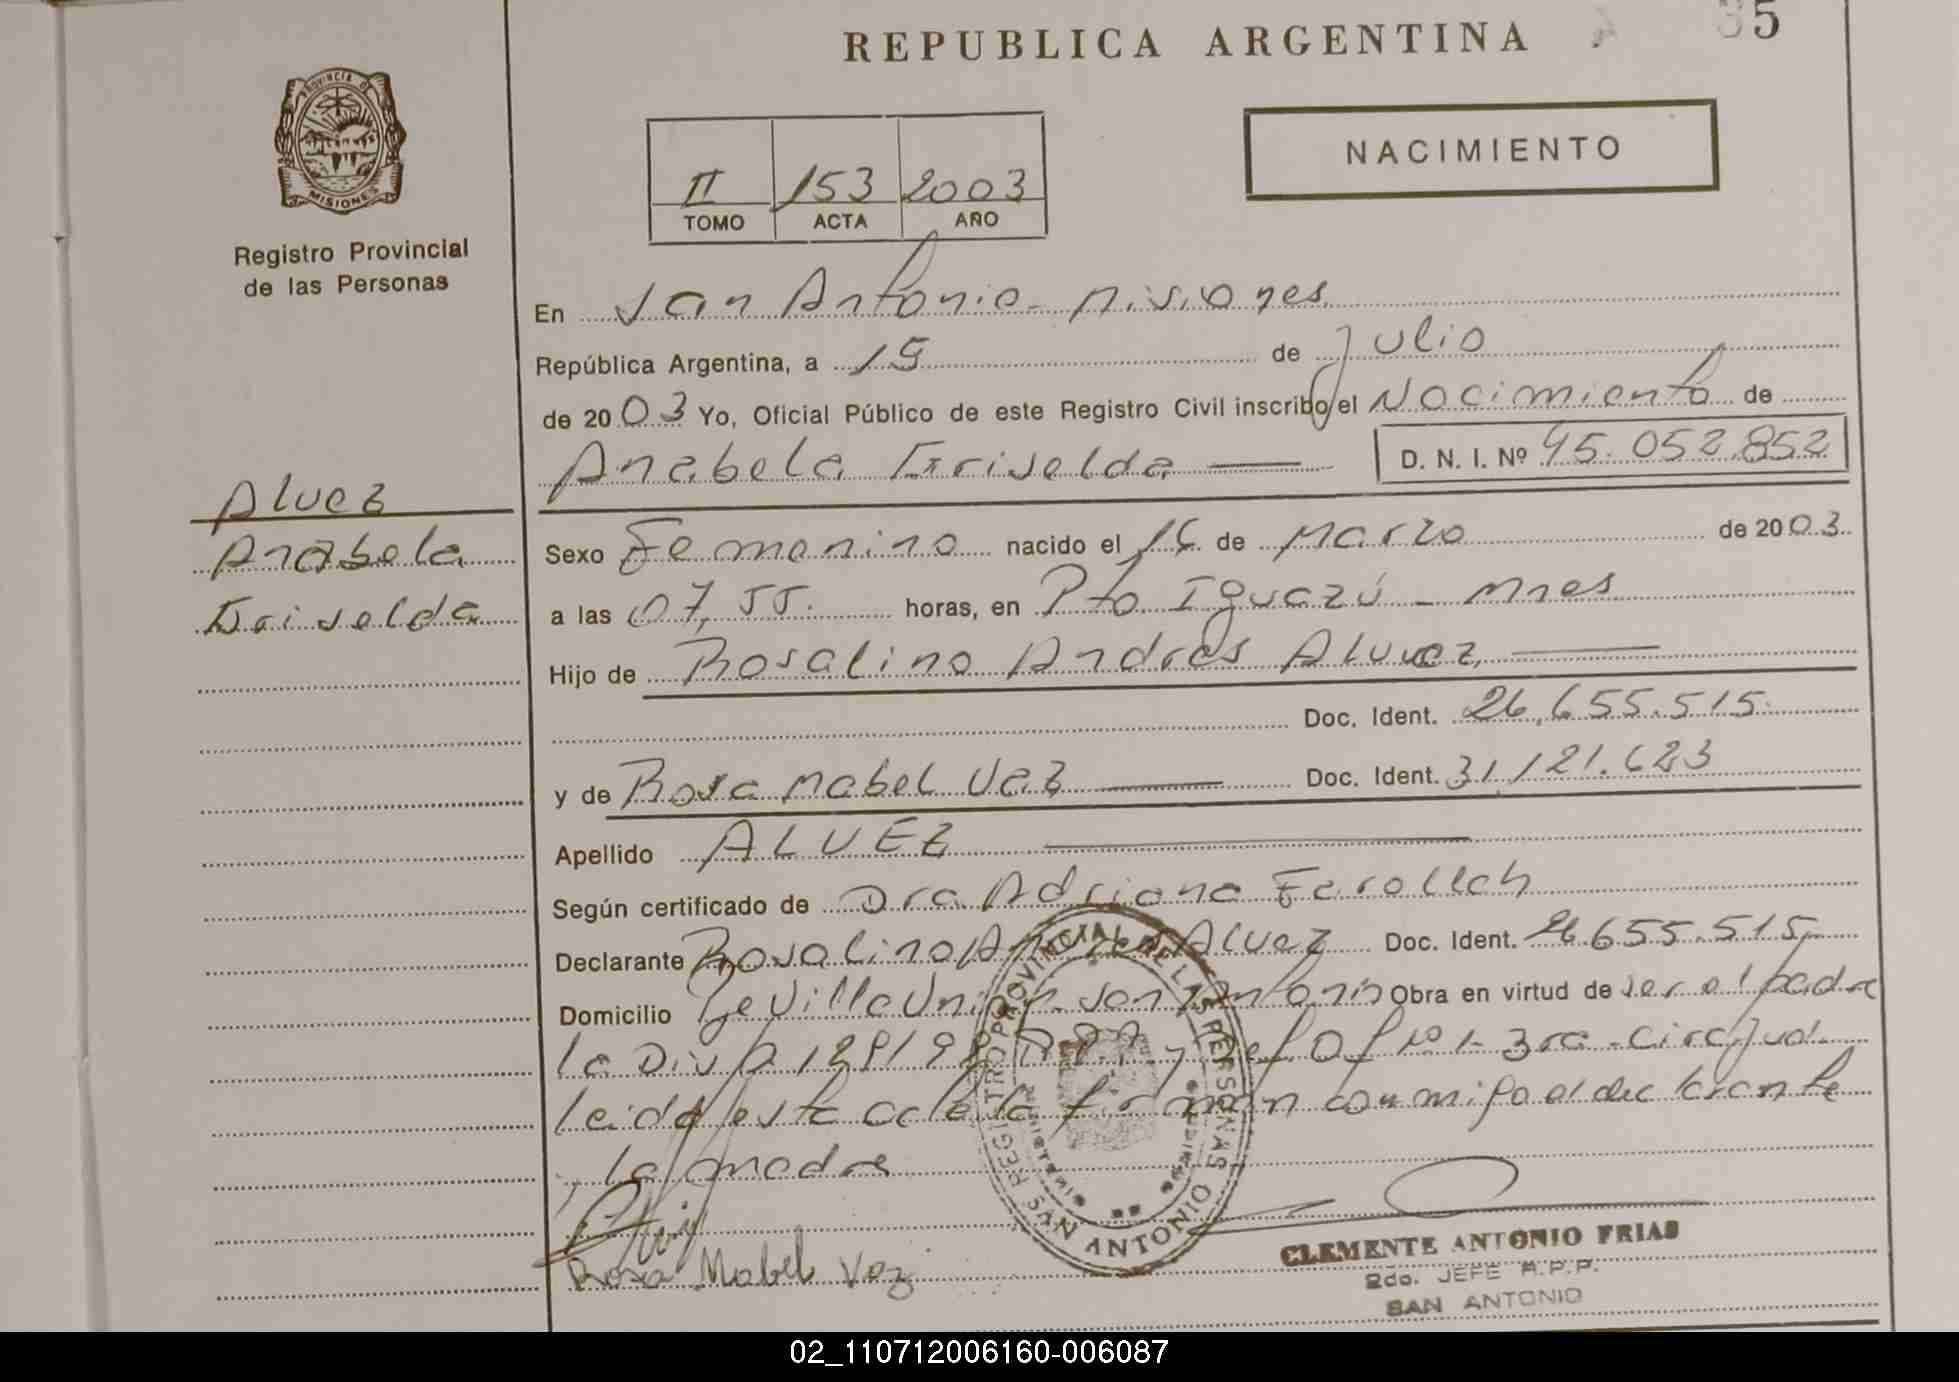 REPUBLICA ARGENTINA
35
PROVINCIA DE
MISIONES
Registro Provincial
de las Personas
II 153 2003
TOMO ACTA AÑO
NACIMIENTO
En San Antonio - Misiones
República Argentina, a 15 de Julio
de 2003 Yo, Oficial Público de este Registro Civil inscribo el Nacimiento de
Anabela Griselda D. N. I. Nº 45.052.852
Alvez
Anabela
Griselda
Sexo Femenino nacido el 16 de Marzo de 2003
a las 07,55. horas, en Pto Iguazú - Mnes
Hijo de Rosalino Andres Alvez
Doc. Ident. 26.655.515
y de Rosa Mabel Vez Doc. Ident. 31.121.623
Apellido ALVEZ
Según certificado de Dra Adriana
Declarante Rosalino Andres Alvez Doc. Ident. 26.655.515
Domicilio Villa Union San Antonio Obra en virtud de ser el padre
la Disp 3ra - Circ Jud.
leida esta acta la firman conmigo el declarante
y la madre
Rosa Mabel Vez
REGISTRO PROVINCIAL DE LAS PERSONAS
SAN ANTONIO
CLEMENTE ANTONIO FRIAS
2do. JEFE R.P.P.
SAN ANTONIO
02_110712006160-006087